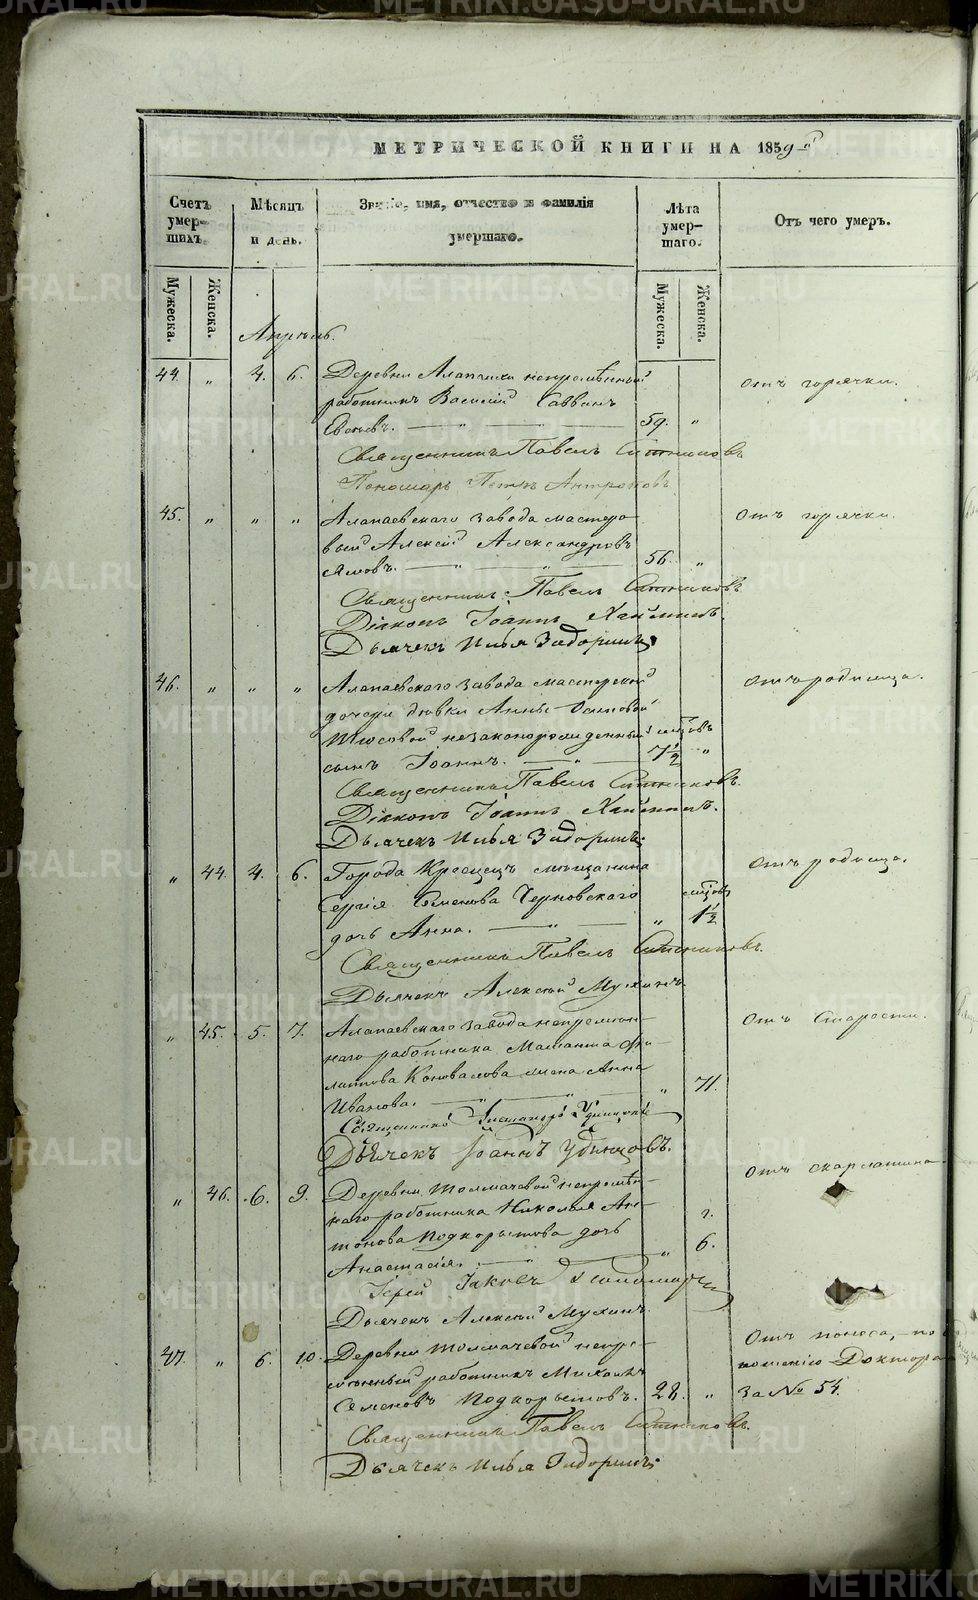 МЕТРИЧЕСКОЙ КНИГИ НА 1859-й
Счетъ умер-шихъ.
Мѣсяцъ и день.
Званіе, имя, отчество и фамилія умершаго.
Лѣта умер-шаго.
Отъ чего умеръ.
Мужеска.
Женска.
Мужеска.
Женска.
Апрѣль.
44. " 4. 6. Деревни Алапчихи непремѣнный отъ горячки.
работникъ Василій Саввинъ
59. "
Священникъ Павелъ Ситниковъ
Пономарь Петръ Антроповъ
45. " " " Алапаевскаго завода мастеро- отъ горячки.
вый Алексѣй Александровъ
56. "
Священникъ Павелъ Ситниковъ
Діаконъ Іоаннъ
Дьячекъ Илья Задоринъ
46. " " " Алапаевскаго завода мастерской отъ родимца.
дочери дѣвки Анны Осиповой
незаконорожденный мѣсцовъ
сынъ Іоаннъ. 7½ "
Священникъ Павелъ Ситниковъ.
Діаконъ Іоаннъ
Дьячекъ Илья Задоринъ.
" 44. 4. 6. Города мѣщанина отъ родимца.
Сергія Семенова Черновскаго мѣсцовъ
дочь Анна. " 1½
Священникъ Павелъ Ситниковъ.
Дьячекъ Алексѣй Мухинъ.
" 45. 5. 7. Алапаевскаго завода непремѣн- отъ старости.
наго работника Фи-
липпова Коновалова жена Анна
Иванова. " 71.
Священникъ Александръ Удинцовъ
Дьячекъ Іоаннъ Удинцовъ.
" 46. 6. 9. Деревни Толмачевой непремѣн- отъ скарлатины
наго работника Николая Ан- г.
тонова Подкорытова дочь 6.
Анастасія. "
Іерей Іаковъ
Дьячекъ Алексѣй Мухинъ.
47. " 6. 10. Деревни Толмачевой непре- отъ поноса, — по
мѣнный работникъ Михаилъ ношенію Доктора
Семеновъ Подкорытовъ. 28. " за № 54.
Священникъ Павелъ Ситниковъ.
Дьячекъ Илья Задоринъ
METRIKI.GASO-URAL.RU